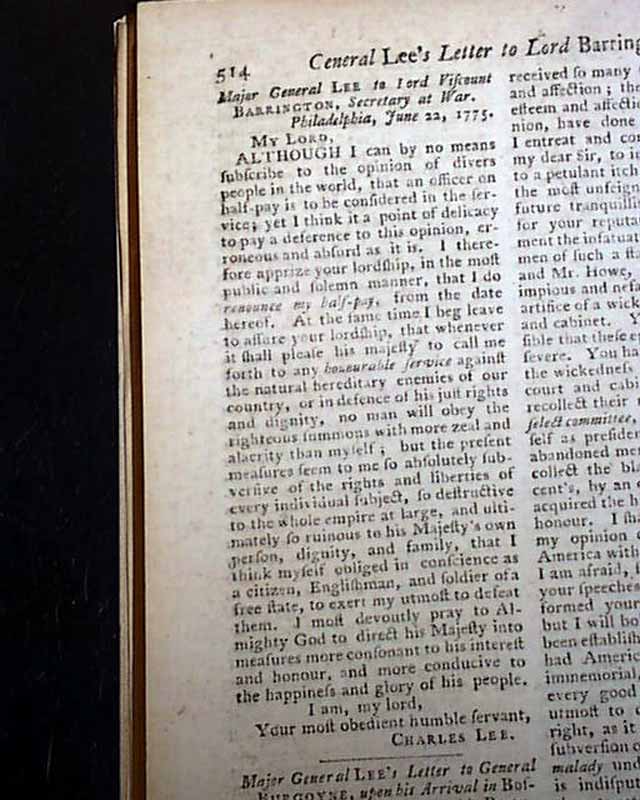 514
General Lee's Letter to Lord Barring
Major General LEE to Lord Viſcount
BARRINGTON, Secretary at War.
Philadelphia, June 22, 1775.
MY LORD,
ALTHOUGH I can by no means
ſubſcribe to the opinion of divers
people in the world, that an officer on
half-pay is to be conſidered in the ſer-
vice; yet I think it a point of delicacy
to pay a deference to this opinion, er-
roneous and abſurd as it is. I there-
fore apprize your lordſhip, in the moſt
public and ſolemn manner, that I do
renounce my half-pay, from the date
hereof. At the ſame time I beg leave
to aſſure your lordſhip, that whenever
it ſhall pleaſe his majeſty to call me
forth to any honourable ſervice againſt
the natural hereditary enemies of our
country, or in defence of his juſt rights
and dignity, no man will obey the
righteous ſummons with more zeal and
alacrity than myſelf; but the preſent
meaſures ſeem to me ſo abſolutely ſub-
verſive of the rights and liberties of
every individual ſubject, ſo deſtructive
to the whole empire at large, and ulti-
mately ſo ruinous to his Majeſty's own
perſon, dignity, and family, that I
think myſelf obliged in conſcience as
a citizen, Engliſhman, and ſoldier of a
free ſtate, to exert my utmoſt to defeat
them. I moſt devoutly pray to Al-
mighty God to direct his Majeſty into
meaſures more conſonant to his intereſt
and honour, and more conducive to
the happineſs and glory of his people.
I am, my lord,
Your moſt obedient humble ſervant,
CHARLES LEE.
Major General LEE's Letter to General
BURGOYNE, upon his Arrival in Boſ-
received ſo many
and affection; the
eſteem and affectio
nion, have done
I entreat and con
my dear Sir, to i
to a petulant itch
the moſt unfeign
future tranquillit
for your reputa
ment the infatuat
men of ſuch a ſta
and Mr. Howe,
impious and nefa
artifice of a wick
and cabinet. Y
ſible that theſe e
ſevere. You ha
the wickedneſs
court and cabi
recollect their
ſelect committee,
ſelf as preſide
abandoned me
collect the bl
cent's, by an
acquired the h
honour. I ſh
my opinion
America with
I am afraid,
your ſpeeches
formed your
but I will bo
been eſtabliſh
had Americ
immemorial,
every good
utmoſt to
right, as it
ſubverſion o
malady und
is indiſput